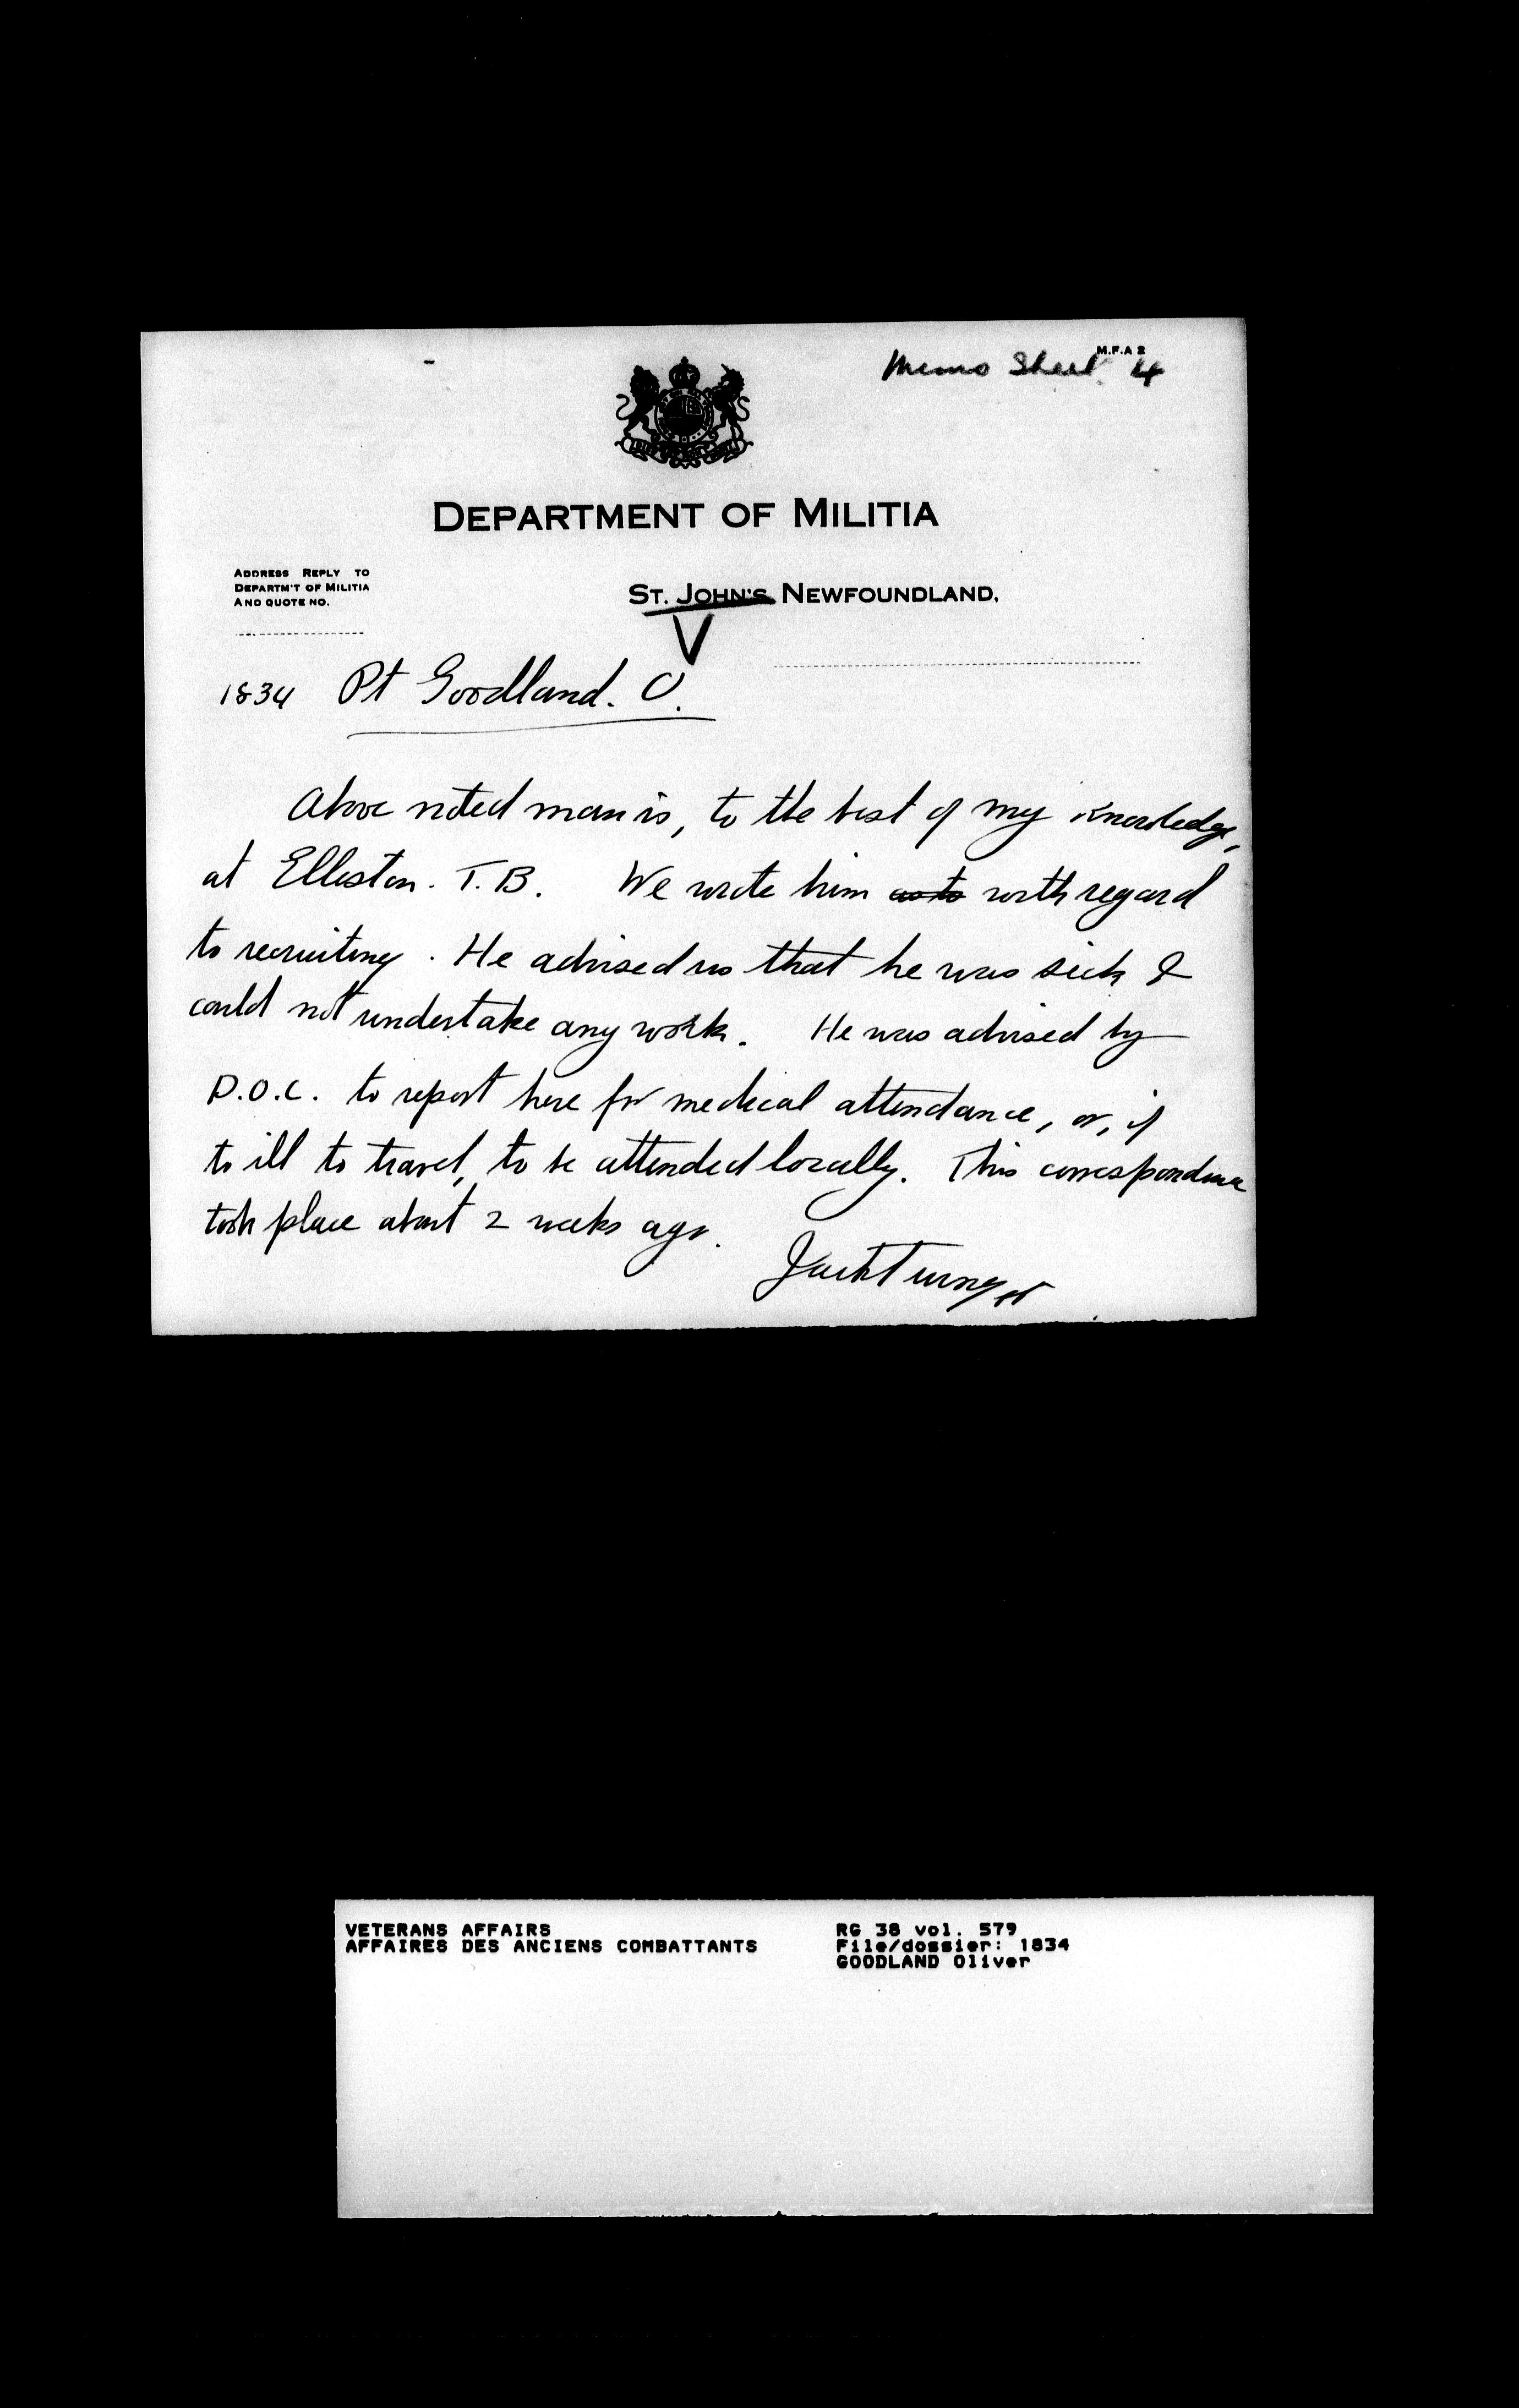 M.F.A 2
Memo Sheet 4
DEPARTMENT OF MILITIA
ADDRESS REPLY TO
DEPARTM'T OF MILITIA
AND QUOTE NO.
ST. JOHN'S NEWFOUNDLAND,
1834 Pt Goodland. O.
Above noted man is, to the best of my knowledge,
at Elliston. T.B. We wrote him as to with regard
to recruiting. He advised us that he was sick &
could not undertake any work. He was advised by
D.O.C. to report here for medical attendance, or, if
to ill to travel, to be attended locally. This correspondence
took place about 2 weeks ago.
VETERANS AFFAIRS
AFFAIRES DES ANCIENS COMBATTANTS
RG 38 vol. 579
File/dossier: 1834
GOODLAND Oliver